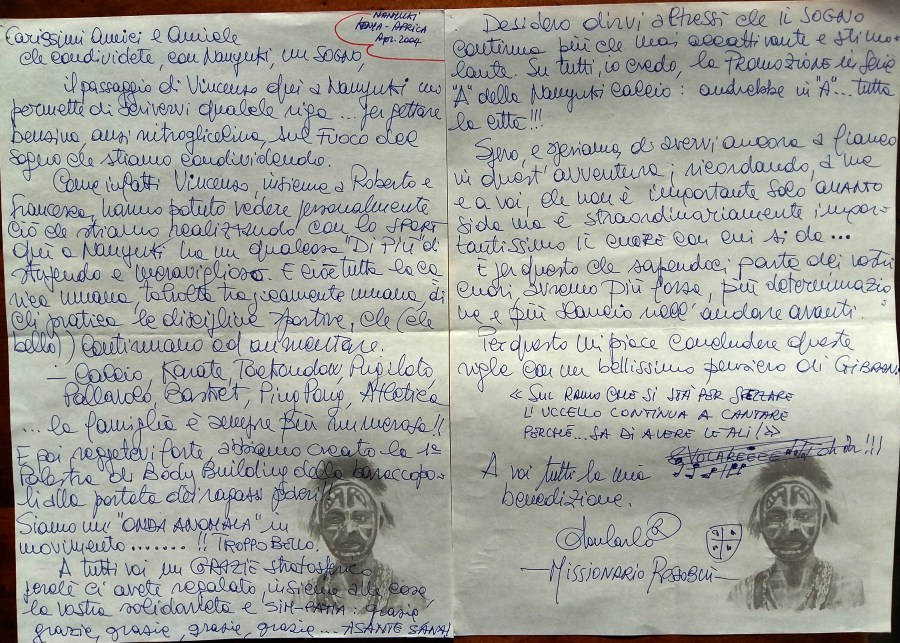 NANYUKI
KENYA - AFRICA
Apr. 2004
Carissimi Amici e Amiche
che condividete, con Nanyuki, un SOGNO,
il passaggio di Vincenzo qui a Nanyuki mi
permette di scrivervi qualche riga ... per gettare
benzina, anzi nitroglicerina, sul FUOCO del
sogno che stiamo condividendo.
Come infatti Vincenzo, insieme a Roberto e
Francesca, hanno potuto vedere personalmente
ciò che stiamo realizzando con lo SPORT
qui a Nanyuki ha un qualcosa "DI PIÙ" di
stupendo e meraviglioso. E cioè tutta la ca
rica umana, talvolta tragicamente umana, di
chi pratica le discipline sportive, che (che
bello)) continuano ad aumentare.
- Calcio, Karate, Taekondow, Pugilato
Pallavolo, Basket, Ping Pong, Atletica
... la famiglia è sempre più numerosa!!
E poi reggetevi forte abbiamo creato la 1ª
Palestra di Body Building della baraccopo-
li alla portata dei ragazzi poveri!!
Siamo un "ONDA ANOMALA" in
movimento ....... !! TROPPO BELLO.
A tutti voi un GRAZIE stratosferico
perché ci avete regalato, insieme alle cose
la vostra solidarietà e SIM-PATIA: grazie
grazie, grazie, grazie, grazie ... ASANTE SANA!
Desidero dirvi altresì che il SOGNO
continua più che mai accattivante e stimo-
lante. Su tutti, io credo, la PROMOZIONE in Serie
"A" della Nanyuki Calcio: andrebbe in "A"... tutta
la città!!!
Spero, e speriamo, di avervi ancora a fianco
in quest'avventura; ricordando, a me
e a voi, che non è importante solo QUANTO
si dà ma è straordinariamente impor-
tantissimo il CUORE con cui si dà ...
È per questo che sapendoci parte dei vostri
cuori, avremo più forza, più determinazio
ne e più slancio nell'andare avanti.
Per questo mi piace concludere queste
righe con un bellissimo pensiero di GIBRAN:
« SUL RAMO CHE SI STÀ PER SPEZZARE
L'UCCELLO CONTINUA A CANTARE
PERCHÉ... SA DI AVERE LE ALI! »
VOLAREEEE oh oh!!!
A voi tutti la mia
benedizione.
Don Carlo
- MISSIONARIO